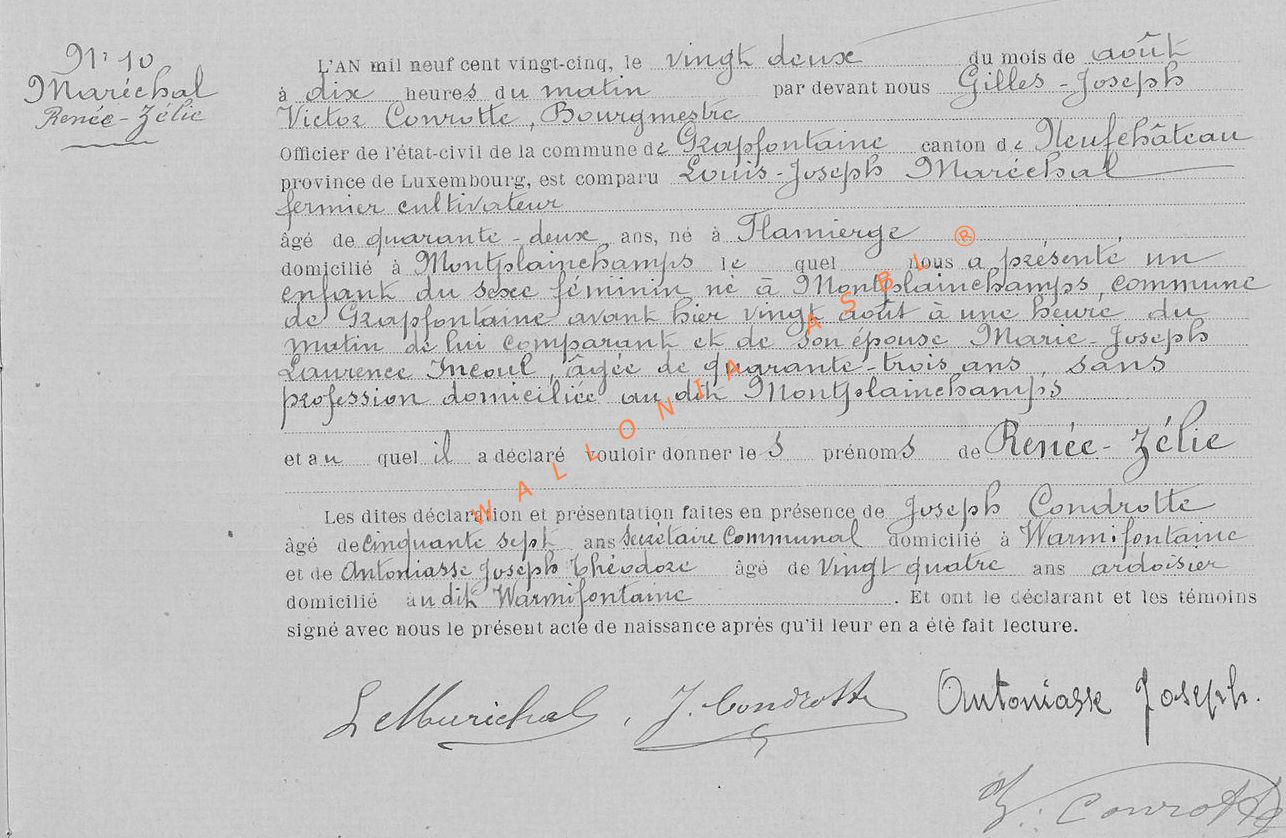 N° 10
Maréchal
Renée-Zélie
L'AN mil neuf cent vingt-cinq, le vingt deux du mois de août
à dix heures du matin par devant nous Gilles-Joseph
Victor Conrotte, Bourgmestre
Officier de l'état-civil de la commune de Grapfontaine canton de Neufchâteau
province de Luxembourg, est comparu Louis-Joseph Maréchal
fermier cultivateur
âgé de quarante-deux ans, né à Flamierge
domicilié à Montplainchamps le quel nous a présenté un
enfant du sexe féminin né à Montplainchamps, commune
de Grapfontaine avant hier vingt août à une heure du
matin de lui comparant et de son épouse Marie-Joseph
Laurence Incoul, âgée de quarante-trois ans, sans
profession domiciliée au dit Montplainchamps
et au quel il a déclaré vouloir donner les prénoms de Renée-Zélie
Les dites déclaration et présentation faites en présence de Joseph Condrotte
âgé de cinquante sept ans Secrétaire Communal domicilié à Warmifontaine
et de Antoniasse Joseph Théodore âgé de vingt quatre ans ardoisier
domicilié au dit Warmifontaine. Et ont le déclarant et les témoins
signé avec nous le présent acte de naissance après qu'il leur en a été fait lecture.
L Maréchal, J. Condrotte Antoniasse Joseph.
V. Conrotte
WALLONIA ASBL ®